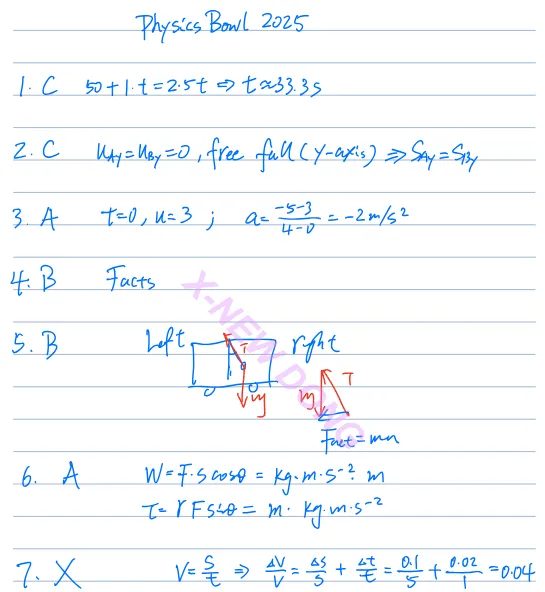 Physics Bowl 2025
1. C 50+1·t=2.5t ⇒ t≈33.3s
2. C u_Ay=u_By=0, free fall (y-axis) ⇒ S_Ay=S_By
3. A t=0, u=3 ; a=\frac{-5-3}{4-0}=-2m/s²
4. B Facts
5. B Left right
T
T
mg
Fnet=ma
6. A W=F·s cosθ = kg·m·s⁻²·m
τ=rFsinθ = m· kg·m·s⁻²
7. X V=\frac{S}{t} ⇒ \frac{ΔV}{V}=\frac{ΔS}{S}+\frac{Δt}{t}=\frac{0.1}{5}+\frac{0.02}{1}=0.04
X-NEW DONG